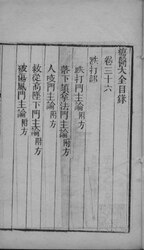 瘍醫大全目錄
卷三十六
跌打部
跌打門主論附方
落下頦拳法門主論附方
人咬門主論附方
救從高墜下門主論附方
破傷風門主論附方